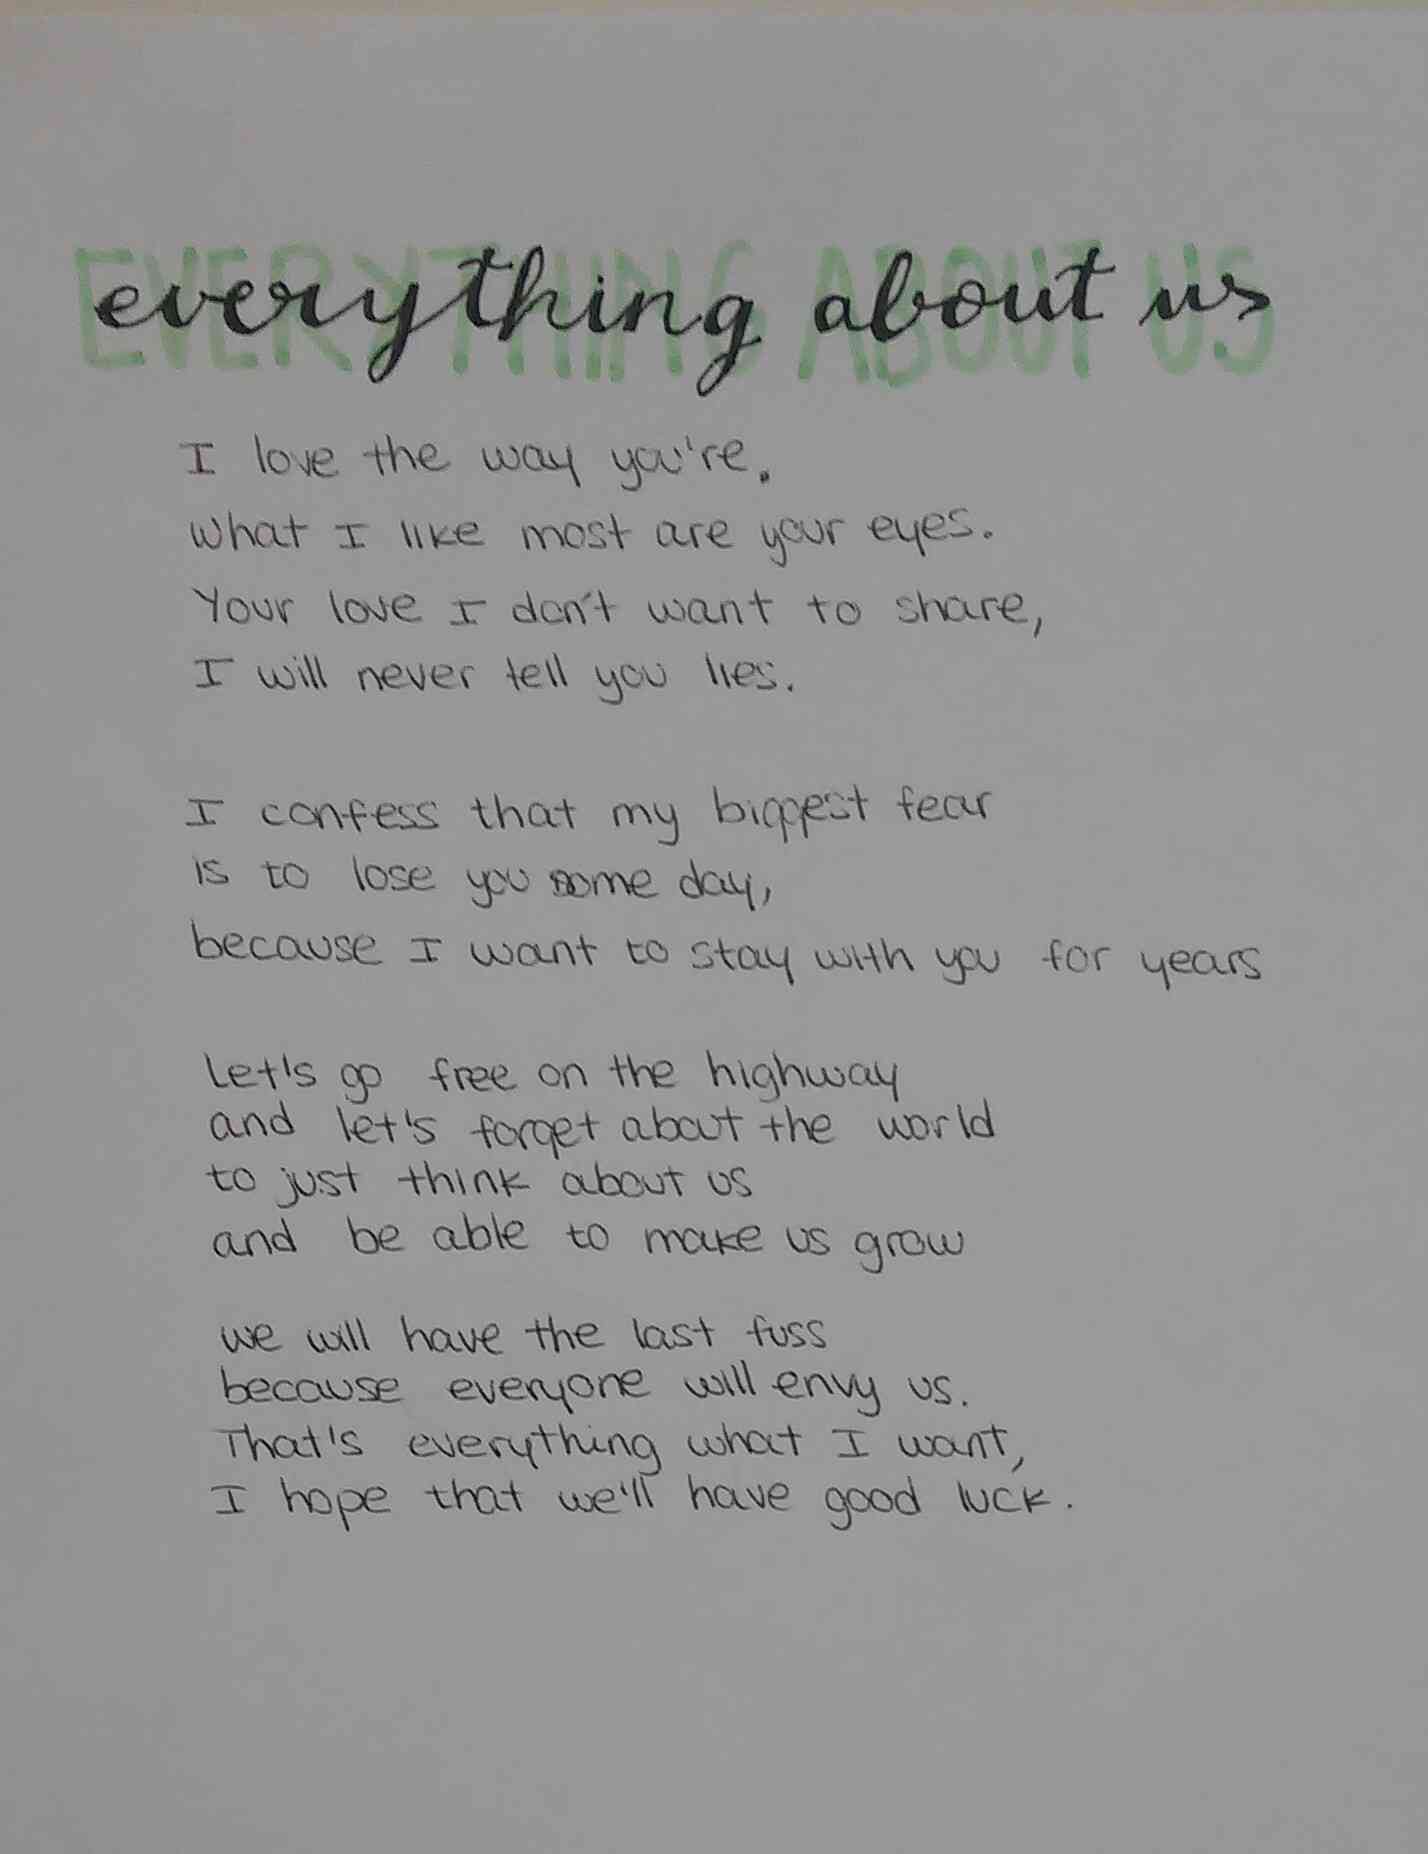 EVERYTHING ABOUT US
everything about us
I love the way you're.
What I like most are your eyes.
Your love I don't want to share,
I will never tell you lies.
I confess that my biggest fear
is to lose you some day,
because I want to stay with you for years
Let's go free on the highway
and let's forget about the world
to just think about us
and be able to make us grow
we will have the last fuss
because everyone will envy us.
That's everything what I want,
I hope that we'll have good luck.